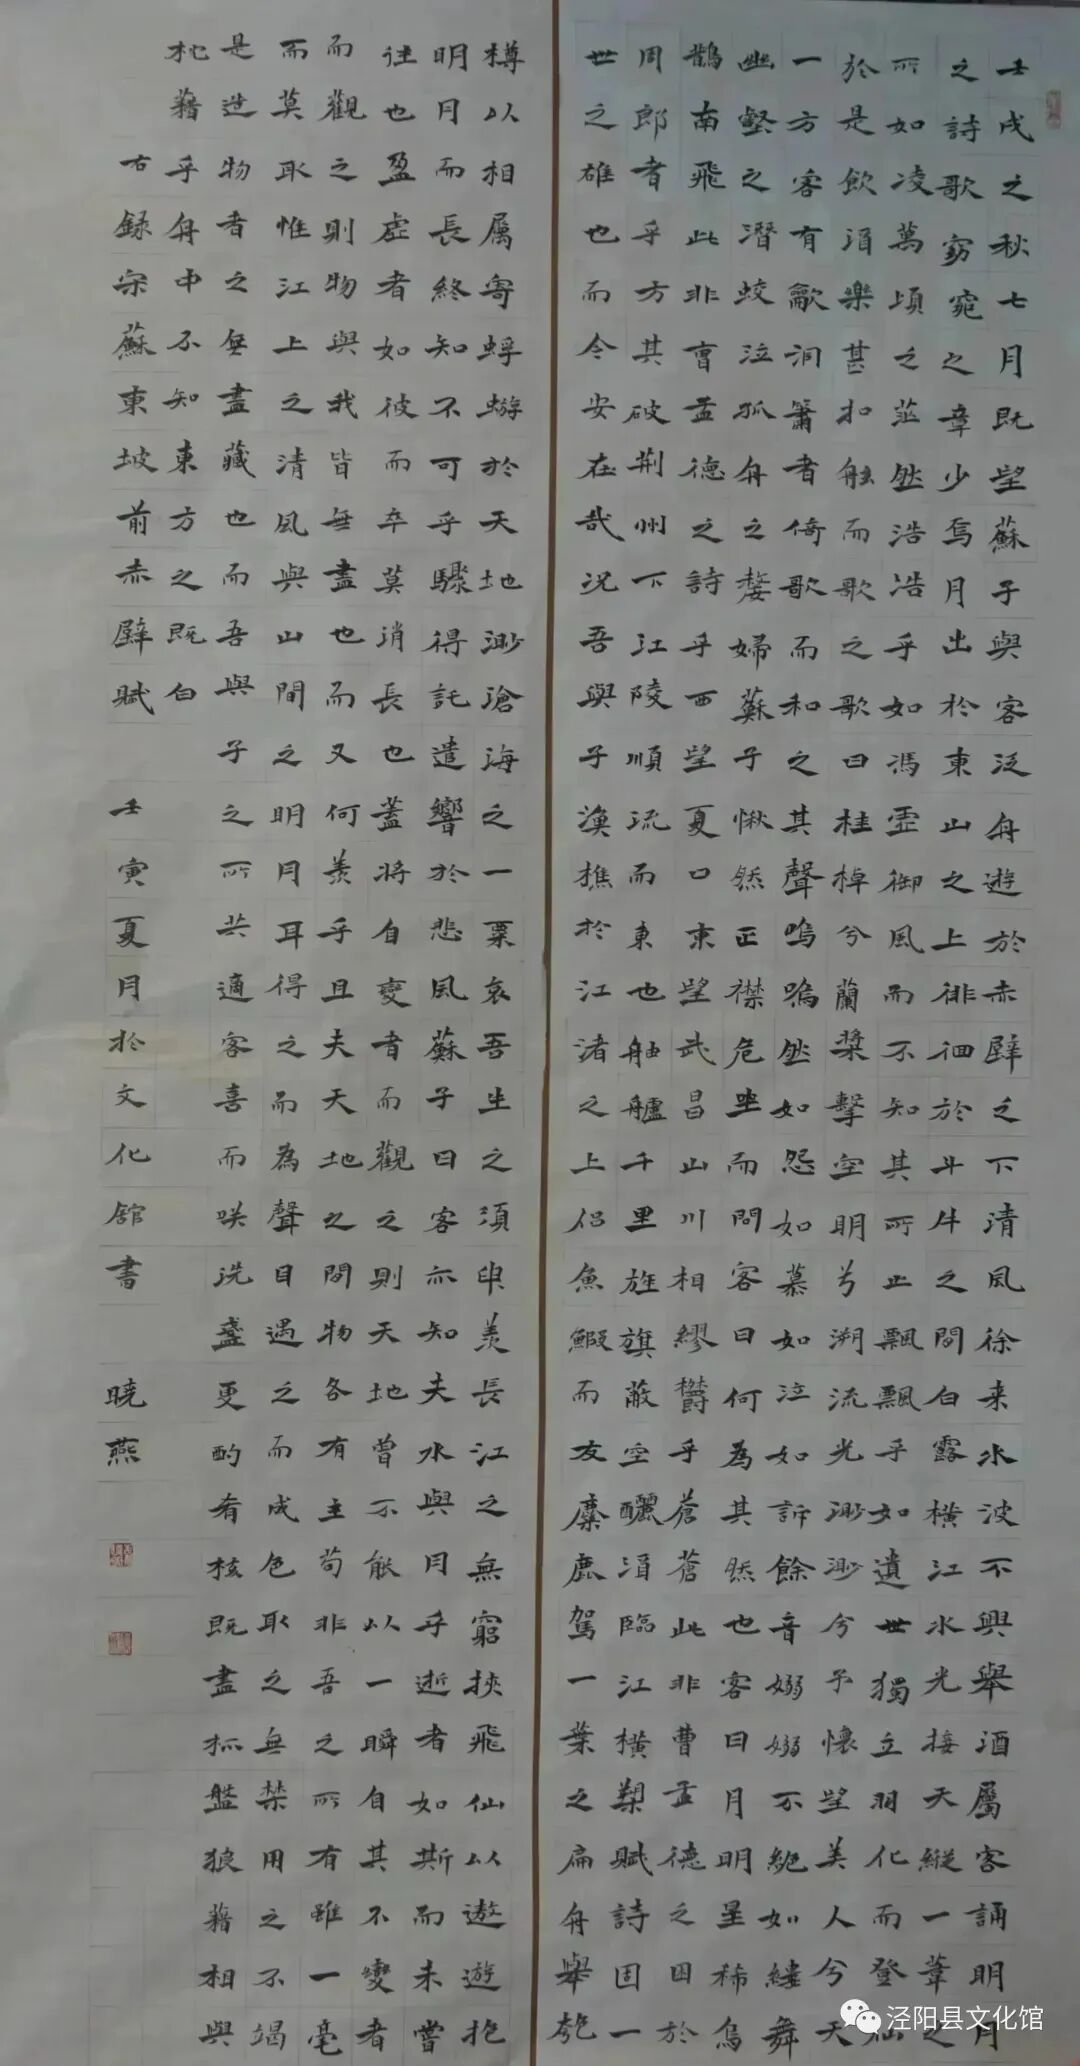 壬戌之秋七月既望蘇子與客泛舟遊於赤壁之下清風徐来水波不興舉酒屬客誦明月
之詩歌窈窕之章少焉月出於東山之上徘徊於斗牛之間白露橫江水光接天縱一葦之
所如凌萬頃之茫然浩浩乎如馮虛御風而不知其所止飄飄乎如遺世獨立羽化而登仙
於是飲酒樂甚扣舷而歌之歌曰桂棹兮蘭槳擊空明兮溯流光渺渺兮予懷望美人兮天
一方客有歙洞簫者倚歌而和之其聲嗚嗚然如怨如慕如泣如訴餘音嫋嫋不絕如縷舞
幽壑之潛蛟泣孤舟之嫠婦蘇子愀然正襟危坐而問客曰何為其然也客曰月明星稀烏
鵲南飛此非曹孟德之詩乎西望夏口東望武昌山川相繆欝乎蒼蒼此非曹孟德之困於
周郎者乎方其破荆州下江陵順流而東也舳艫千里旌旗蔽空釃酒臨江橫槊賦詩固一
世之雄也而今安在哉況吾與子漁樵於江渚之上侶魚鰕而友麋鹿駕一葉之扁舟舉匏
樽以相屬寄蜉蝣於天地渺滄海之一粟哀吾生之須臾羨長江之無窮挾飛仙以遨遊抱
明月而長終知不可乎驟得託遺響於悲風蘇子曰客亦知夫水與月乎逝者如斯而未嘗
往也盈虛者如彼而卒莫消長也蓋將自變者而觀之則天地曾不能以一瞬自其不變者
而觀之則物與我皆無盡也而又何羨乎且夫天地之間物各有主苟非吾之所有雖一毫
而莫取惟江上之清風與山間之明月耳得之而為聲目遇之而成色取之無禁用之不竭
是造物者之無盡藏也而吾與子之所共適客喜而咲洗盞更酌肴核既盡杯盤狼藉相與
枕藉乎舟中不知東方之既白
右録宋蘇東坡前赤壁賦 壬寅夏月於文化館書 曉燕
泾阳县文化馆